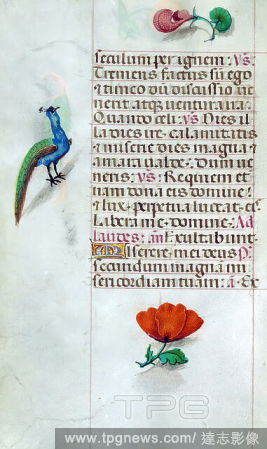 seculum per ignem: Vs
Tremens factus sũ ego
⁊ timeo dũ discussio ue
nerit atq3 uentura ira.
Quando celi: Vs Dies il
la dies ire calamitatis
⁊ miserie dies magna ⁊
amara ualde: dum ue
neris: Vs: Requiem et
nam dona eis domine:
⁊ lux perpetua luceat eis
Libera me domine. Ad
laudes: an Exultabunt.
Miserere mei deus Ps
secundum magnã mi
sericordiam tuam: a Ex
TPG
www.tpgnews.com / 達志影像